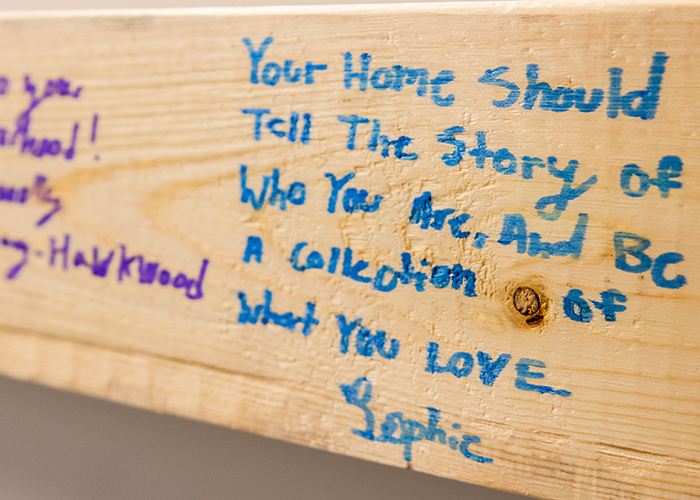 your
Hawkwood
Your Home Should
Tell The Story of
Who You Are, And Be
A Collection of
What You LOVE
Sophie